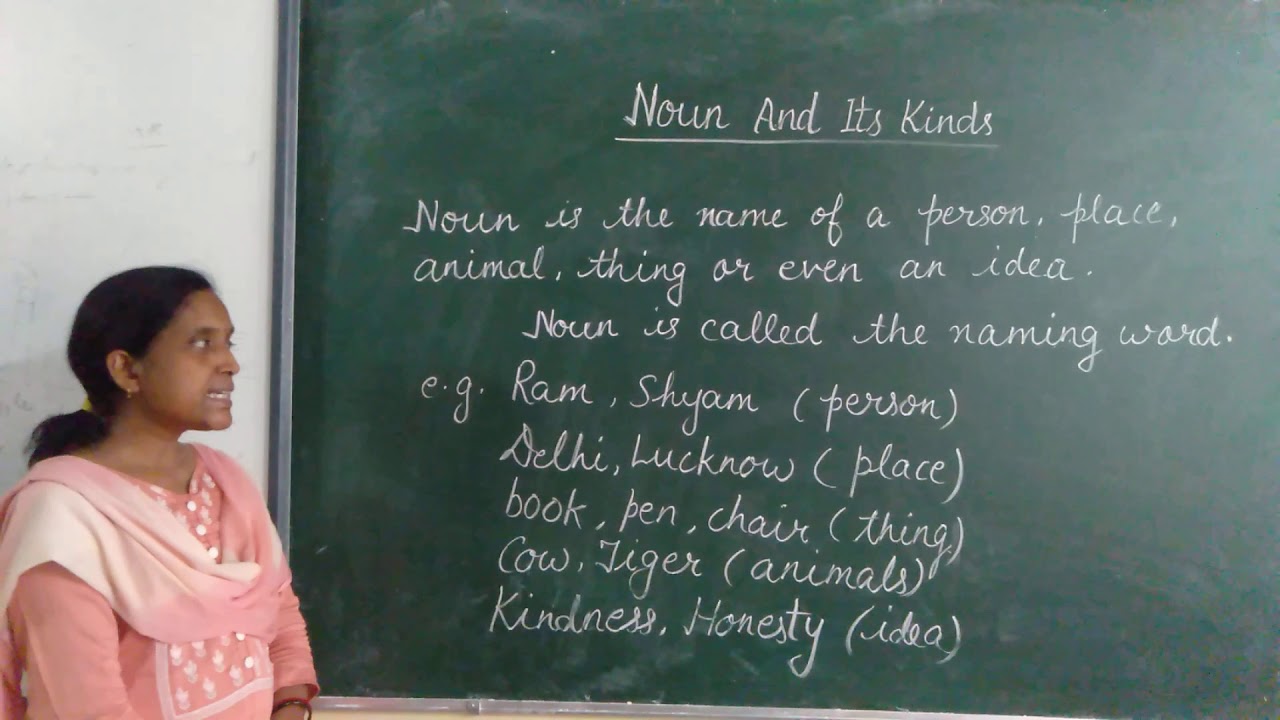 Noun And Its Kinds
Noun is the name of a person, place,
animal, thing or even an idea.
Noun is called the naming word.
e.g. Ram, Shyam (person)
Delhi, Lucknow (place)
book, pen, chair (thing)
Cow, Tiger (animals)
Kindness, Honesty (idea)